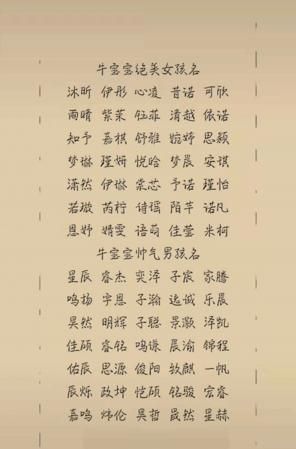 牛宝宝绝美女孩名
沐昕 伊彤 心凌 昔诺 可欣
雨晴 紫茱 钰菲 清越 依诺
知予 嘉棋 舒雅 婉婷 思颖
梦琳 瑾妍 悦晗 梦晨 安琪
潇然 伊琳 棠芯 予诺 瑾怡
若璇 芮柠 诗瑶 陌芊 诺凡
恩妤 婧雯 语萌 佳莹 米柯
牛宝宝帅气男孩名
星辰 睿杰 奕泽 子宸 家腾
鸣扬 宇恩 子瀚 逸诚 乐晨
昊然 明辉 子聪 景灏 泽凯
佳硕 睿铭 鸣谦 晨渝 锦程
佑辰 思源 俊阳 牧麒 一帆
辰烁 政坤 恺硕 铭骏 宏睿
嘉鸣 炜伦 昊哲 晟然 星赫